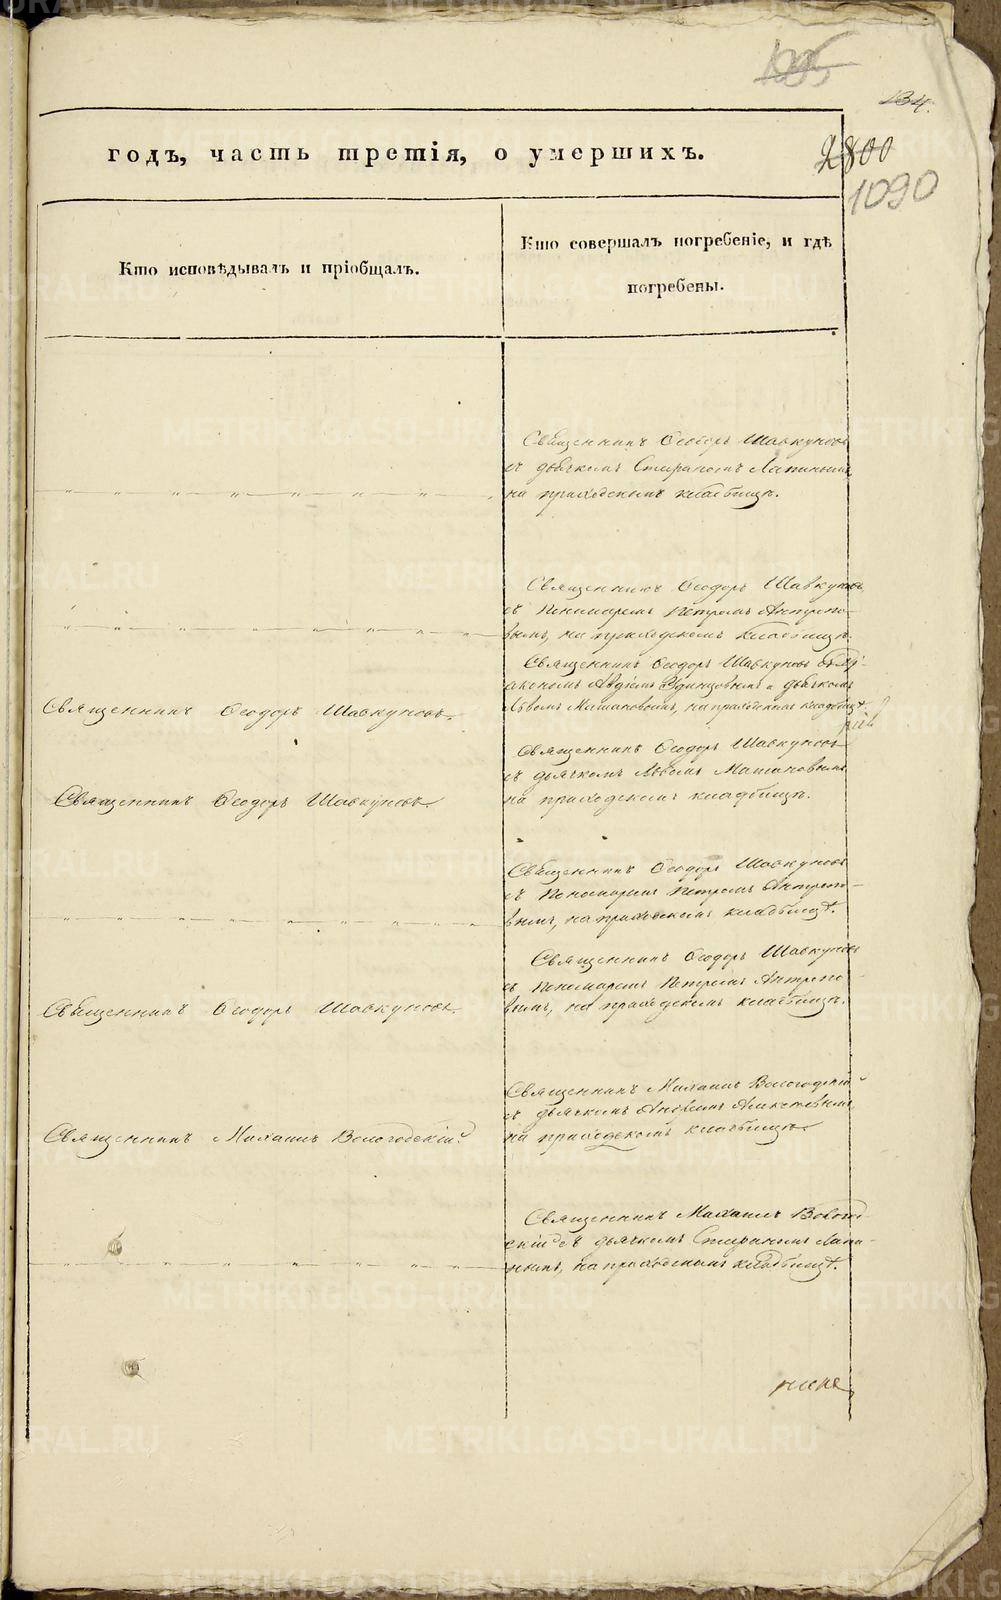 1095
134.
годъ, часть третія, о умершихъ.
2800
1090
Кто исповѣдывалъ и пріобщалъ.
Кто совершалъ погребеніе, и гдѣ
погребены.
Священникъ Ѳеодоръ Шавкуновъ
съ дьячкомъ Стефаномъ Лапинымъ
на приходскомъ кладбищѣ.
Священникъ Ѳеодоръ Шавкуновъ
съ Пономаремъ Петромъ Антропо-
вымъ, на приходскомъ кладбищѣ.
Священникъ Ѳеодоръ Шавкуновъ.
Священникъ Ѳеодоръ Шавкуновъ съ Ді-
акономъ Авдіемъ Удинцовымъ и дьячкомъ
Львомъ на приходскомъ кладбищѣ.
Священникъ Ѳеодоръ Шавкуновъ.
Священникъ Ѳеодоръ Шавкуновъ
съ дьячкомъ Львомъ
на приходскомъ кладбищѣ.
Священникъ Ѳеодоръ Шавкуновъ
съ Пономаремъ Петромъ Антропо-
вымъ, на приходскомъ кладбищѣ.
Священникъ Ѳеодоръ Шавкуновъ.
Священникъ Ѳеодоръ Шавкуновъ
съ Пономаремъ Петромъ Антропо-
вымъ, на приходскомъ кладбищѣ.
Священникъ Михаилъ Вологодскій
Священникъ Михаилъ Вологодскій
съ дьячкомъ
на приходскомъ кладбищѣ
Священникъ Михаилъ Волого-
дскій съ дьячкомъ Стефаномъ Лапи-
нымъ, на приходскомъ кладбищѣ.
METRIKI.GASO-URAL.RU